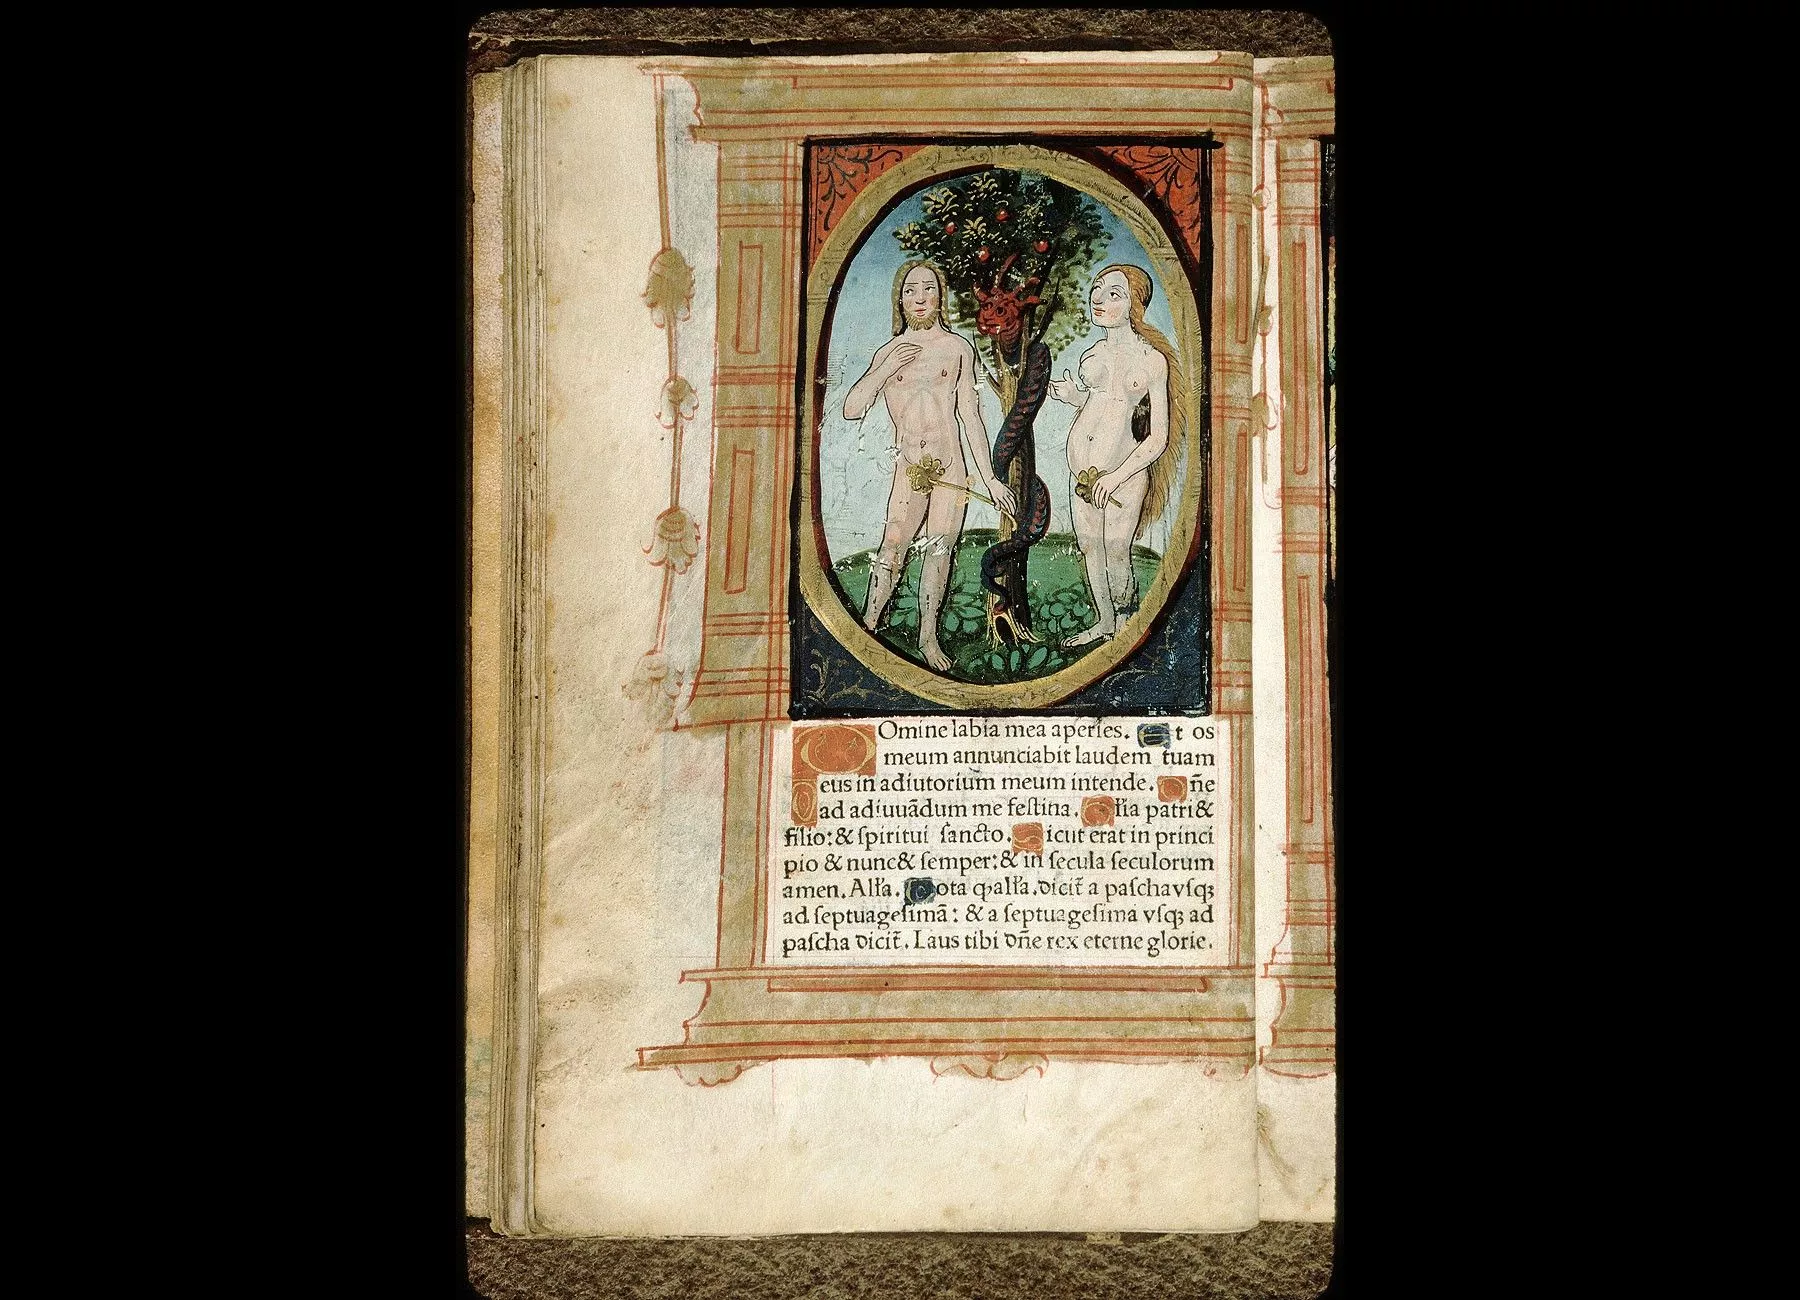 DOmine labia mea aperies. Et os
meum annunciabit laudem tuam
Deus in adiutorium meum intende. Dn̄e
ad adiuuādum me festina. Gl'ia patri &
filio: & spiritui sancto. Sicut erat in princi
pio & nunc & semper: & in secula seculorum
amen. All'a. Nota ꝙ all'a. dicit̄ a pascha vsqꝫ
ad septuagesimā: & a septuagesima vsqꝫ ad
pascha dicit̄. Laus tibi dn̄e rex eterne glorie.